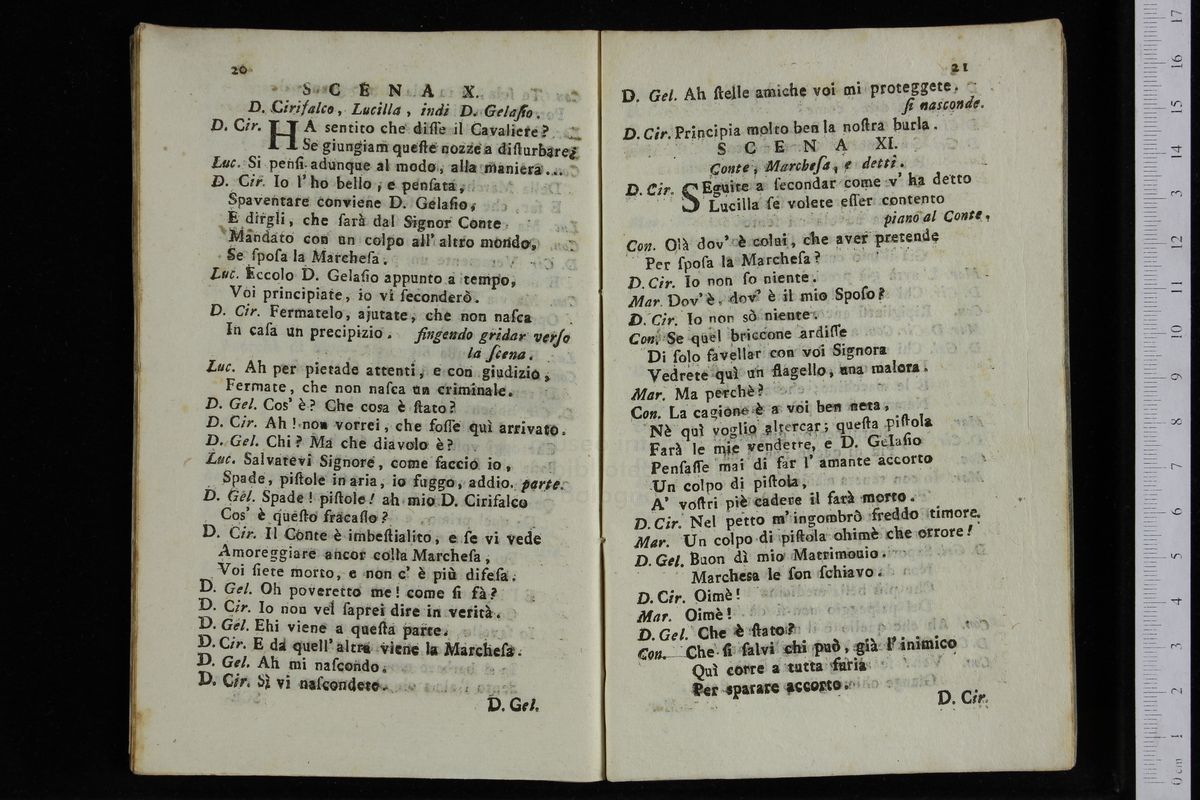 20
S C E N A X.
D. Cirifalco, Lucilla, indi D. Gelaſio.
D. Cir. HA sentito che diſſe il Cavaliere?
Se giungiam queſte nozze a diſturbare;
Luc. Si penſi adunque al modo, alla maniera...
D. Cir. Io l'ho bello, e penſata,
Spaventare conviene D. Gelaſio,
E dirgli, che ſarà dal Signor Conte
Mandato con un colpo all' altro mondo,
Se ſpoſa la Marcheſa.
Luc. Eccolo D. Gelaſio appunto a tempo,
Voi principiate, io vi ſeconderò.
D. Cir. Fermatelo, ajutate, che non naſca
In caſa un precipizio. fingendo gridar verſo
la ſcena.
Luc. Ah per pietade attenti, e con giudizio,
Fermate, che non naſca un criminale.
D. Gel. Cos' è? Che coſa è ſtato?
D. Cir. Ah! non vorrei, che foſſe quì arrivato.
D. Gel. Chi? Ma che diavolo è?
Luc. Salvatevi Signore, come faccio io,
Spade, piſtole in aria, io fuggo, addio. parte.
D. Gel. Spade! piſtole! ah mio D. Cirifalco
Cos' è queſto fracaſſo?
D. Cir. Il Conte è imbeſtialito, e ſe vi vede
Amoreggiare ancor colla Marcheſa,
Voi ſiete morto, e non c' è più difeſa.
D. Gel. Oh poveretto me! come ſi fà?
D. Cir. Io non vel ſaprei dire in verità.
D. Gel. Ehi viene a queſta parte.
D. Cir. E da quell' altra viene la Marcheſa.
D. Gel. Ah mi naſcondo.
D. Cir. Sì vi naſcondete.
D. Gel.
21
D. Gel. Ah ſtelle amiche voi mi proteggete.
ſi nasconde.
D. Cir. Principia molto ben la noſtra burla.
S C E N A XI.
Conte, Marcheſa, e detti.
D. Cir. SEguite a ſecondar come v' ha detto
Lucilla ſe volete eſſer contento
piano al Conte.
Con. Olà dov' è colui, che aver pretende
Per ſpoſa la Marcheſa?
D. Cir. Io non ſo niente.
Mar. Dov' è, dov' è il mio Spoſo?
D. Cir. Io non sò niente.
Con. Se quel briccone ardiſſe
Di ſolo favellar con voi Signora
Vedrete quì un flagello, una malora.
Mar. Ma perchè?
Con. La cagione è a voi ben nota,
Nè quì voglio altercar; queſta piſtola
Farà le mie vendette, e D. Gelaſio
Penſaſſe mai di far l' amante accorto
Un colpo di piſtola,
A' voſtri piè cadere il farà morto.
D. Cir. Nel petto m' ingombrò freddo timore.
Mar. Un colpo di piſtola ohimè che orrore!
D. Gel. Buon dì mio Matrimonio.
Marchesa le ſon ſchiavo.
D. Cir. Oimè!
Mar. Oimè!
D. Gel. Che è ſtato?
Con. Che ſi ſalvi chi può, già l' inimico
Quì corre a tutta furia
Per sparare accorto.
D. Cir.